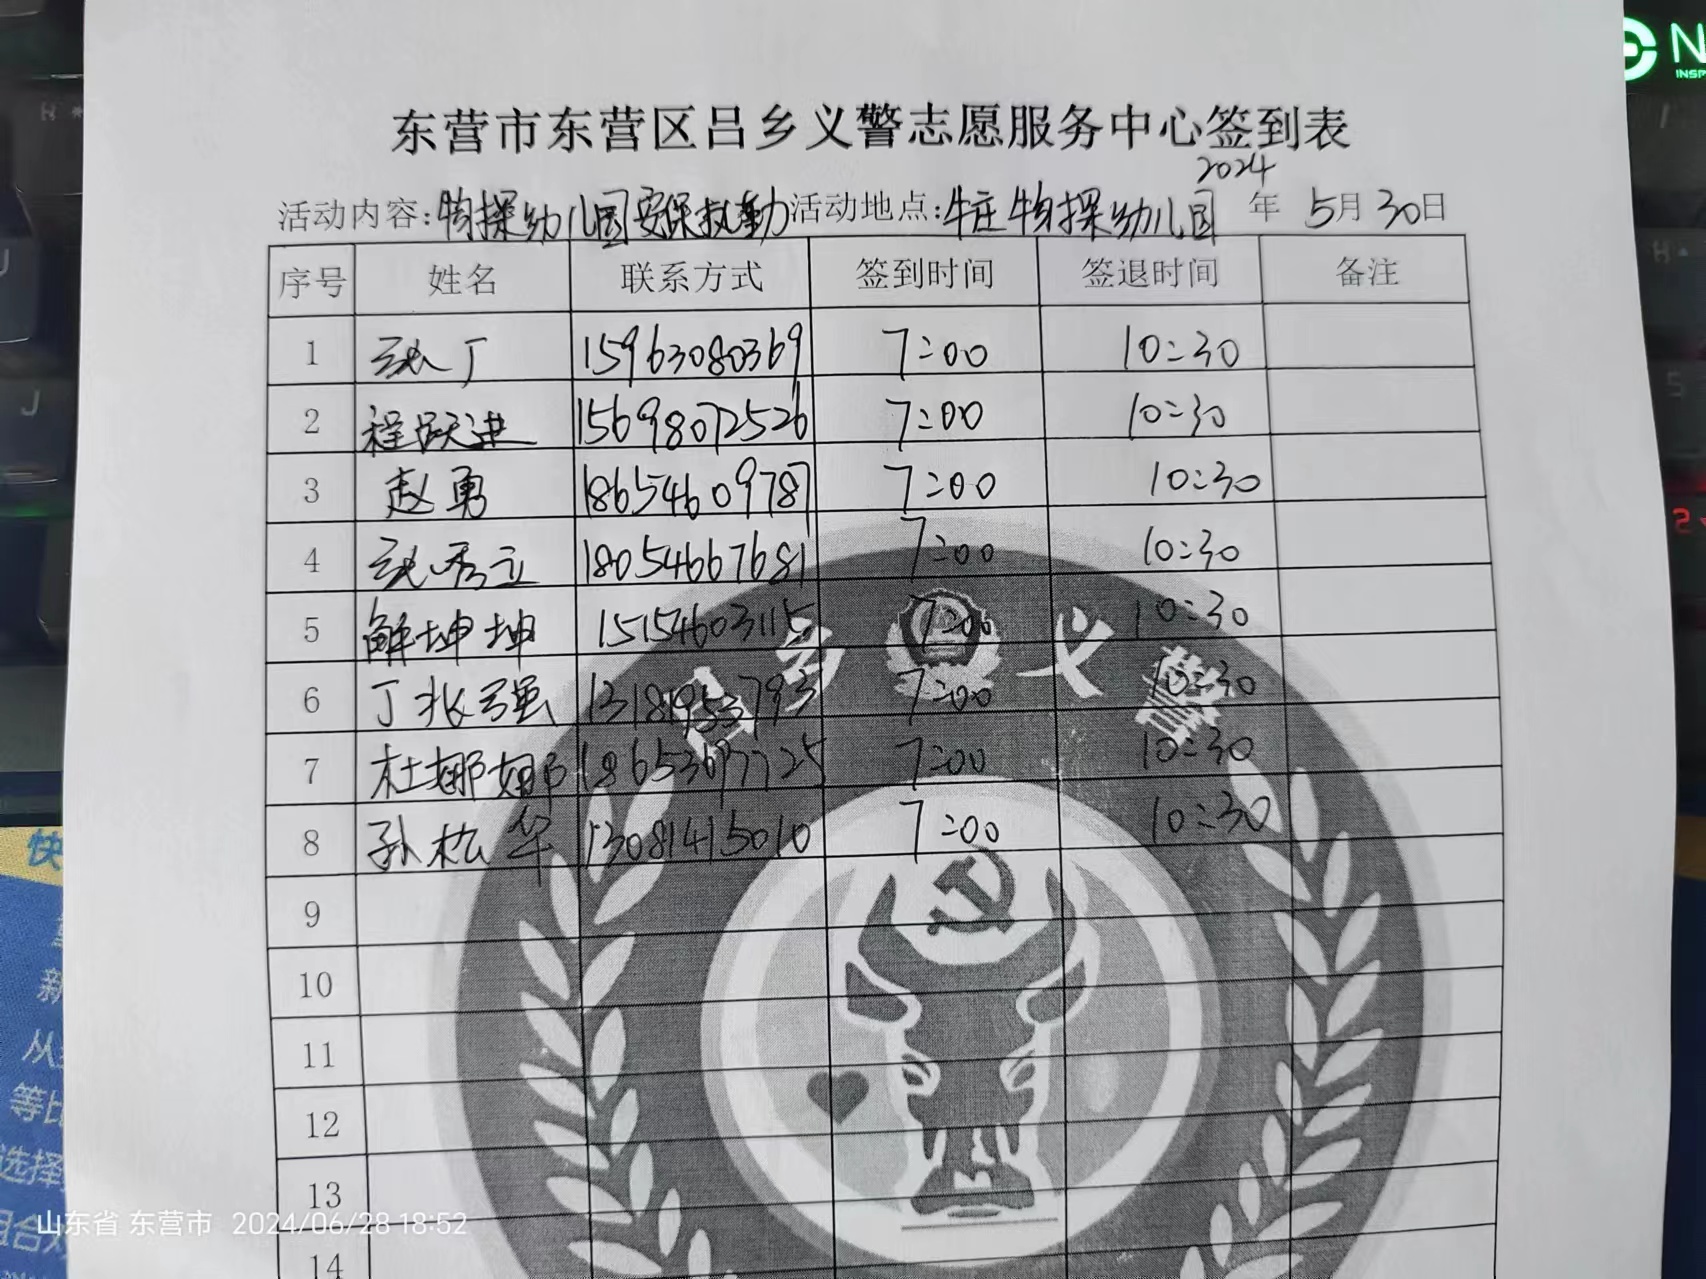 东营市东营区吕乡义警志愿服务中心签到表
2024
活动内容:物探幼儿园安保执勤活动地点:牛庄物探幼儿园 年 5月30日
序号 姓名 联系方式 签到时间 签退时间 备注
1 张丁 15963080369 7:00 10:30
2 程跃进 15698072526 7:00 10:30
3 赵勇 18654609787 7:00 10:30
4 张秀立 18054667681 7:00 10:30
5 解坤坤 15154603115 7:00 10:30
6 丁兆强 13181953793 7:00 10:30
7 杜娜娜 18653697725 7:00 10:30
8 孙松华 13081415010 7:00 10:30
9
10
11
12
13
14
吕乡义警
快
新
从
等比
选择
组合
山东省 东营市 2024/06/28 18:52